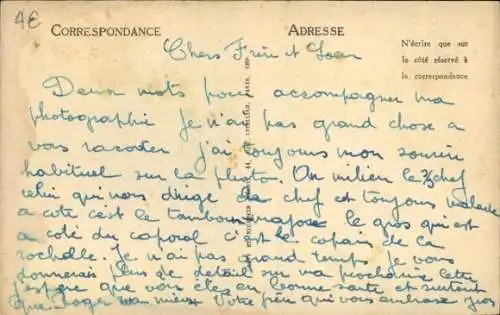 4€
CORRESPONDANCE
ADRESSE
N'écrire que sur
le côté réservé à
la correspondance
Chers Frère et Soeur
Deux mots pour accompagner ma
photographie je n'ai pas grand chose a
vous raconter j'ai toujours mon sourire
habituel sur la photo. Au milieu le chef
celui qui nous dirige chef et toujours malade
a coté c'est le tambour major le gros qui est
a coté du caporal c'est le copain de La
rochelle. Je n'ai pas grand temps je vous
donnerais plus de detail sur ma prochaine lettre
j'espere que vous etes en bonne santé et surtout
que Roger va mieux Votre frère qui vous embrasse